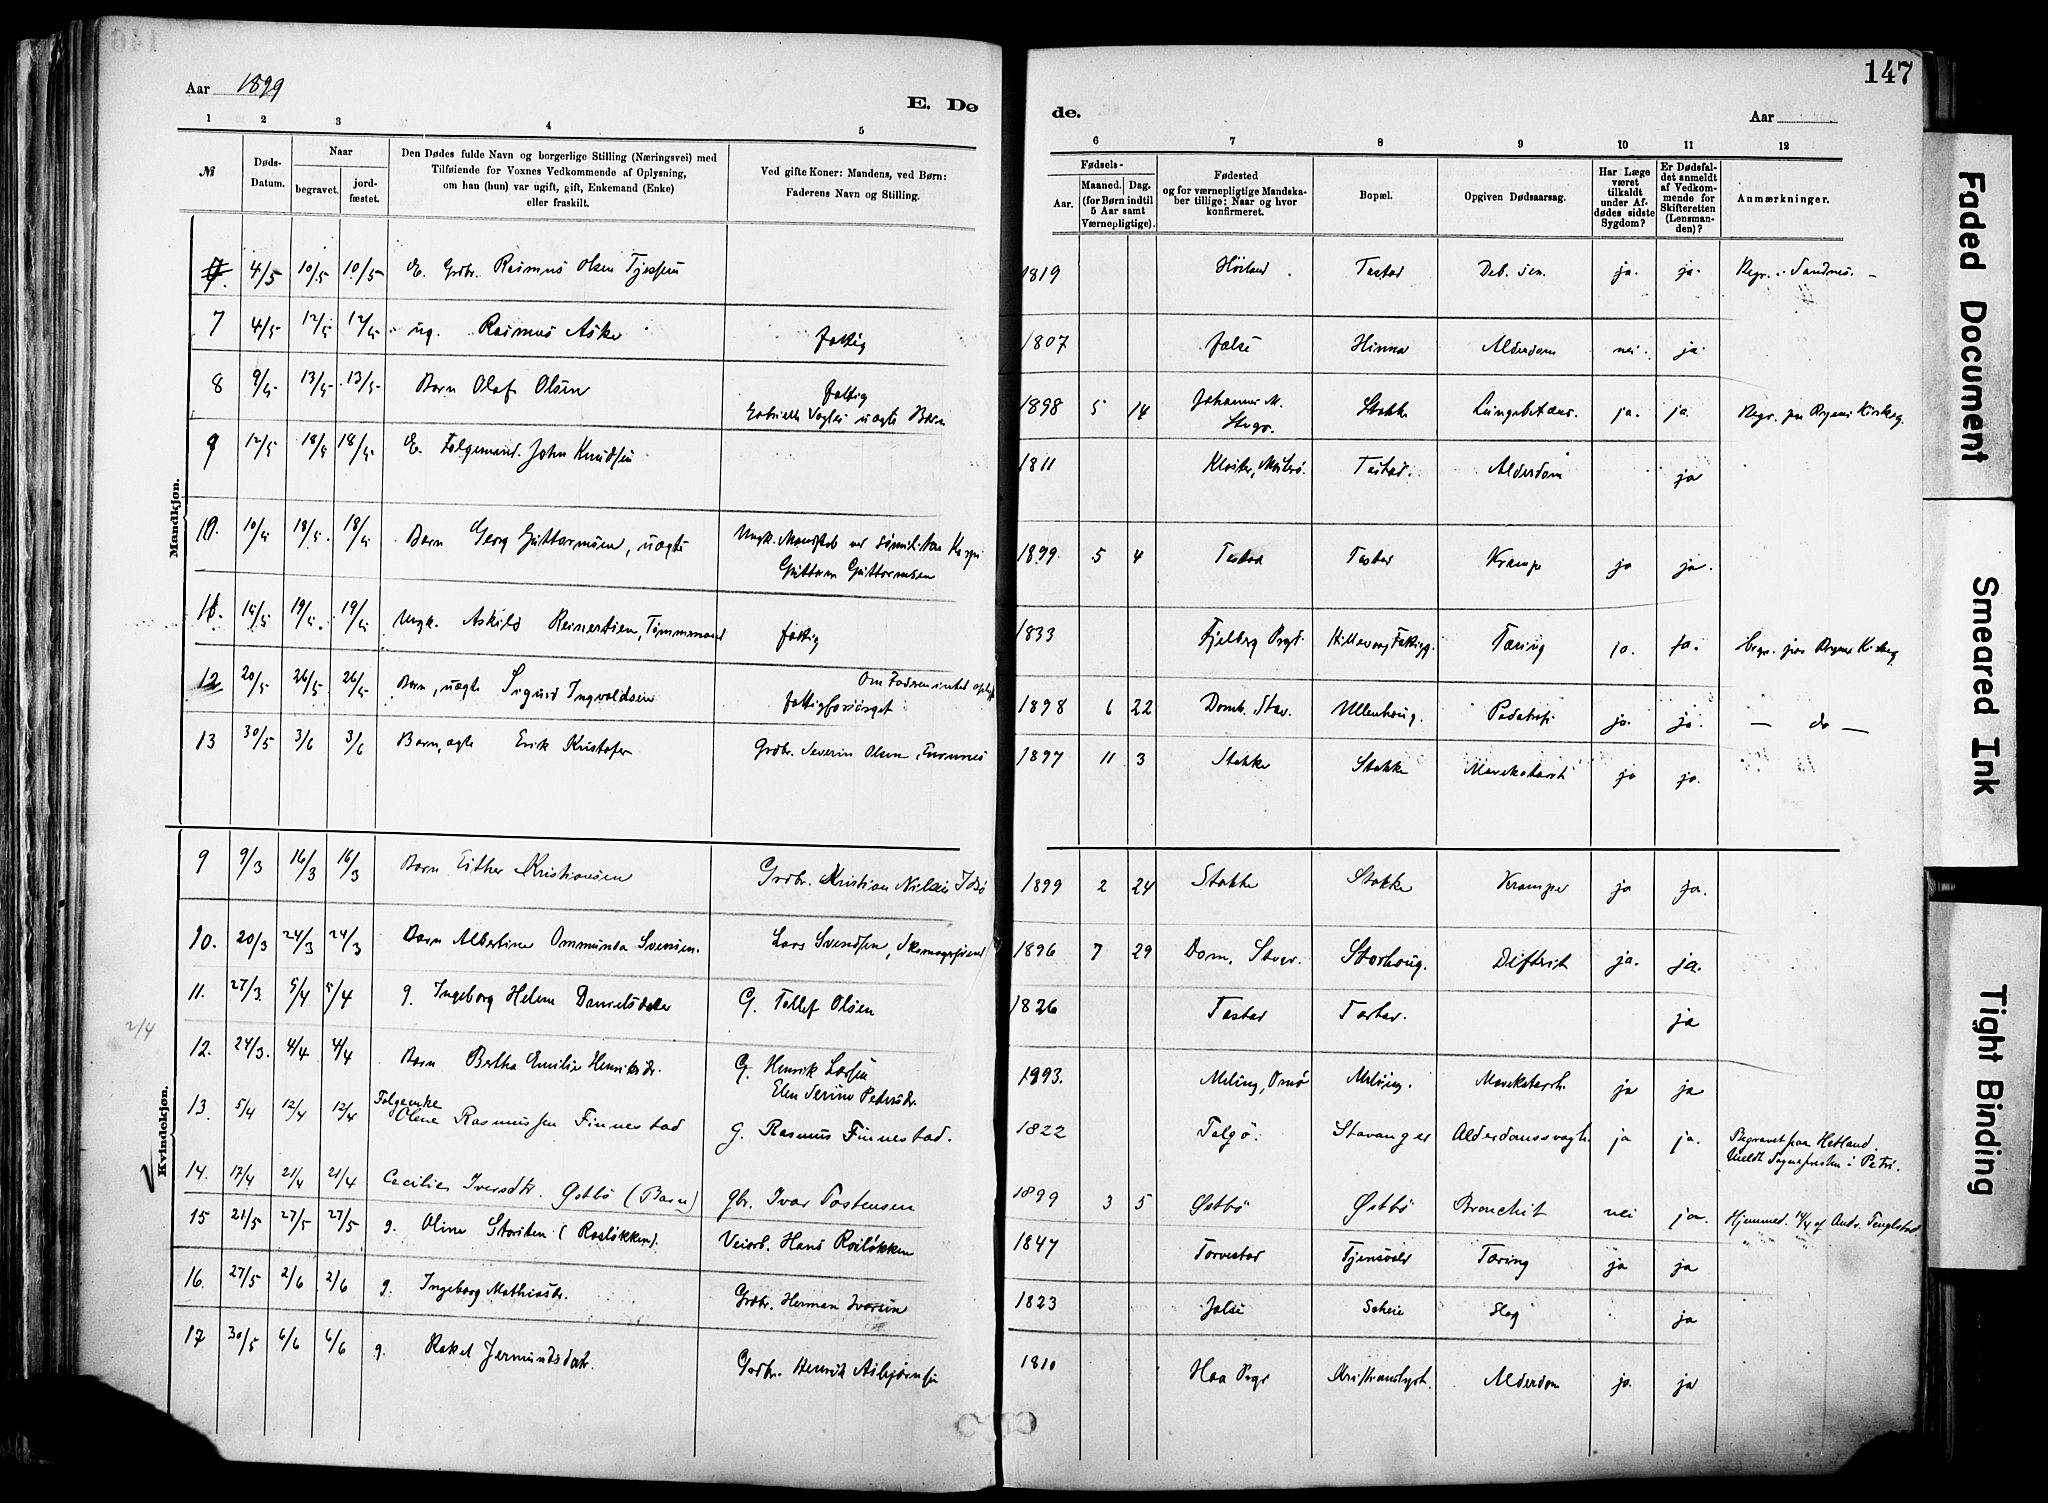 147
Aar 1899
E. Dø
de.
Aar
1 2 3 4 5
6 7 8 9 10 11 12
№
Døds-Datum.
Naar
begravet.
jord-fæstet.
Den Dødes fulde Navn og borgerlige Stilling (Næringsvei) med
Tilføiende for Voxnes Vedkommende af Oplysning,
om han (hun) var ugift, gift, Enkemand (Enke)
eller fraskilt.
Ved gifte Koner: Mandens, ved Børn:
Faderens Navn og Stilling.
Fødsels-
Aar.
Maaned. Dag.
(for Børn indtil
5 Aar samt
Værnepligtige).
Fødested
og for værnepligtige Mandska-
ber tillige: Naar og hvor
konfirmeret.
Bopæl.
Opgiven Dødsaarsag.
Har Læge
været
tilkaldt
under Af-
dødes sidste
Sygdom?
Er Dødsfal-
det anmeldt
af Vedkom-
mende for
Skifteretten
(Lensman-
den)?
Anmærkninger.
Mandkjøn.
4/5 10/5 10/5 E. Grdbr. Rasmus Olsen Tjessem 1819 Høiland Tastad Deb. sen. ja. ja. Begr. i Sandnes.
7 4/5 12/5 12/5 ug. Rasmus Aske fattig 1807 Jalse Hinna Alderdom nei ja
8 9/5 13/5 13/5 Barn Olaf Olsen fattig
Gabrielle Vagtes uægte Barn 1898 5 14 Johannes M.
Stvgr. Stokke Lungebetæns. ja. ja. Begr. paa Byens Kirkeg.
9 12/5 18/5 18/5 E. Folgemand John Knudsen 1811 Kloster, Mosterø. Tastad. Alderdom ja
10. 10/5 18/5 18/5 Barn Georg Guttormsen, uægte Ungk.
Guttorm Guttormsen 1899 5 4 Tastad Tastad Krampe ja ja.
11. 15/5 19/5 19/5 Ungk. Askild Reinertsen, Tømmermand fattig 1833 Fjelberg Prgj. Hillevaag Fattigg. Tæring ja. ja. Begr. paa Byens Kirkeg
12 20/5 26/5 26/5 Barn, uægte Sigurd Ingvaldsen Om Faderen intet oplyst
fattigforsørget 1898 6 22 Domk. Stav. Ullenhaug. ja. ja. — do —
13 30/5 3/6 3/6 Barn, ægte Erik Kristofer Grdbr. Severin Olsen 1897 11 3 Stokke Stokke Mavekatarrh ja ja.
Kvindekjøn.
9 9/3 16/3 16/3 Barn Esther Kristiansen Grdbr. Kristian Nilsen Idsø 1899 2 24 Stokke Stokke Krampe ja ja.
10. 20/3 24/3 24/3 Barn Albertine Ommunda Svensen. Lars Svendsen, Skomagersvend 1896 7 29 Dom, Stvgr. Storhaug. Diftrit ja. ja.
11. 27/3 5/4 5/4 g. Ingeborg Helene Danielsdatter G. Tollef Olsen 1826 Tastad Tastad. ja
2/4
12. 24/3. 4/4 4/4 Barn Bertha Emilie Henriksdr. G. Henrik Larsen
Elen Serine Pedersdr. 1893. Meling, Omø Meling. Mavekatarrh. ja ja
13. 5/4 12/4 12/4 Folgeenke
Olene Rasmussen Finnestad G. Rasmus Finnestad. 1822 Talgø. Stavanger Alderdomssvagh. ja ja. Begravet paa Hetland.
Meldt Sognepresten i Petri.
14. 17/4 21/4 21/4 Cecilie Iversdtr. Østbø (Barn) gbr. Ivar Tostensen 1899 3 5 Østbø Østbø Bronchit nei ja. Hjemmed. 14/4 af Andr. Tengelstad
15 21/5 27/5 27/5 g. Oline Storsten (Rosløkken). Veiarb. Hans Rosløkken 1847 Torvestad Tjensvold Tæring ja ja
16. 27/5 2/6 2/6 g. Ingeborg Mathiasdr. Grdbr. Herman Ivarsen 1823 Jalse Scheie Slag ja
17 30/5 6/6 6/6 g. Rakel Jermundsdatr. Grdbr. Henrik Asbjørnsen 1810 Haa Prgj Kristianslyst. Alderdom ja. ja
Faded Document
Smeared Ink
Tight Binding